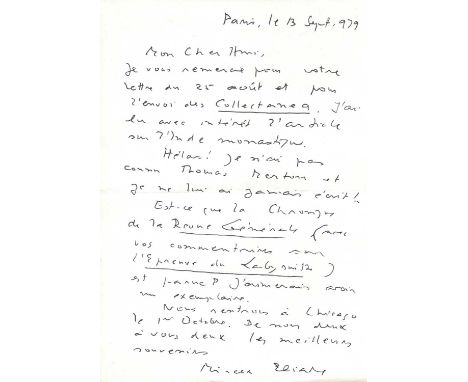 Paris, le 13 Sept. 979
Mon Cher Ami,
Je vous remercie pour votre
lettre du 25 août et pour
l'envoi des Collectanea. J'ai
lu avec intérêt l'article
sur l'Inde monastique.
Hélas! Je n'ai pas
connu Thomas Merton et
je ne lui ai jamais écrit!
Est-ce que la Chronique
de la Revue Générale (avec
vos commentaires sur
l'Epreuve du Labyrinthe)
est parue? J'aimerais avoir
un exemplaire.
Nous rentrons à Chicago
le 1er Octobre. De nous deux
à vous deux les meilleurs
souvenirs
Mircea Eliade